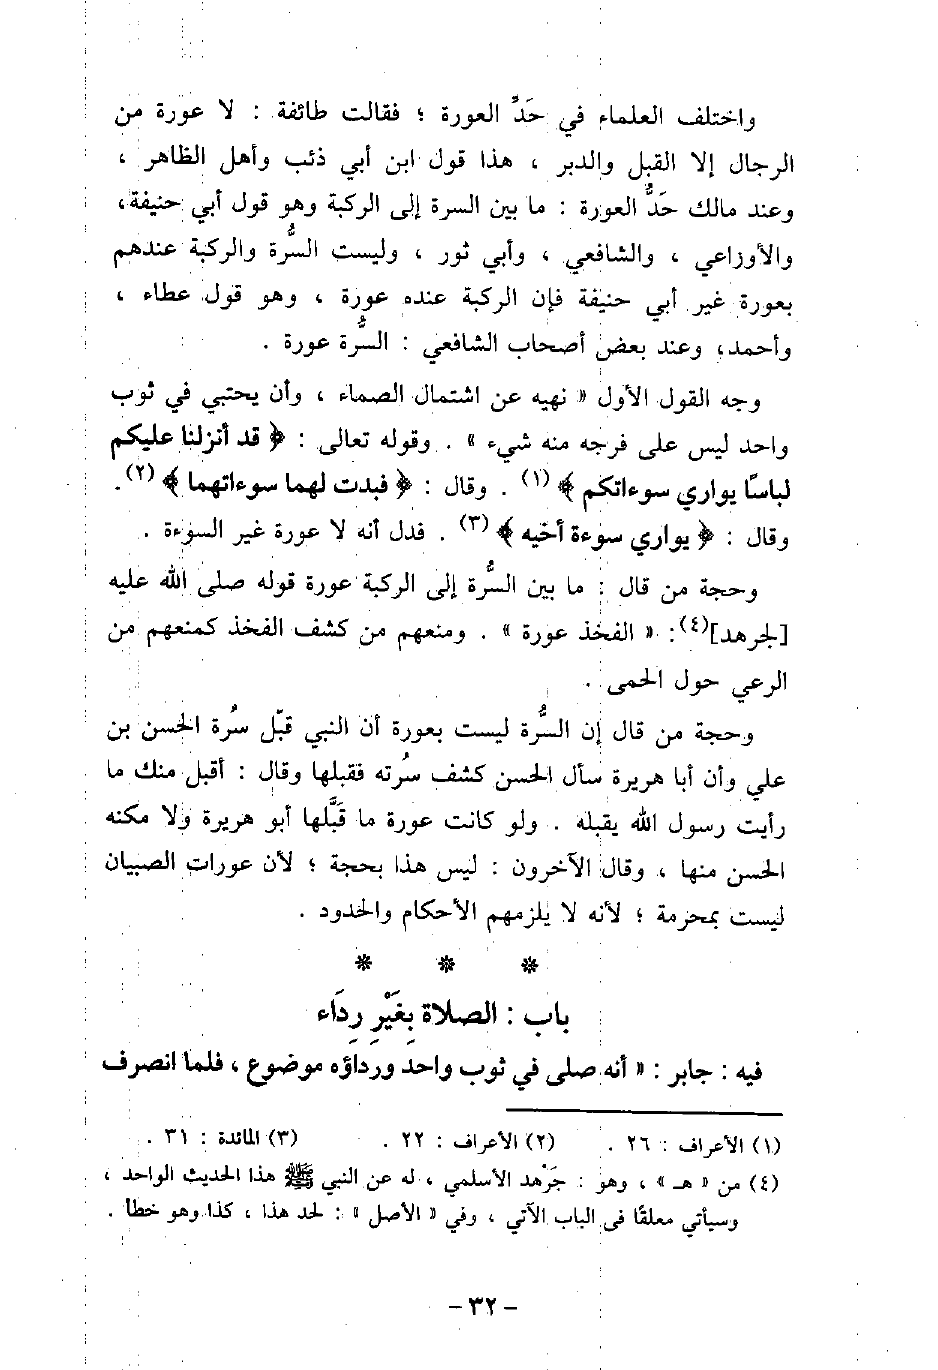 واختلف العلماء في حَدِّ العورة ؛ فقالت طائفة : لا عورة من
الرجال إلا القبل والدبر ، هذا قول ابن أبي ذئب وأهل الظاهر ،
وعند مالك حَدُّ العورة : ما بين السرة إلى الركبة وهو قول أبي حنيفة،
والأوزاعي ، والشافعي ، وأبي ثور ، وليست السُّرة والركبة عندهم
بعورة غير أبي حنيفة فإن الركبة عنده عورة ، وهو قول عطاء ،
وأحمد، وعند بعض أصحاب الشافعي : السُّرة عورة .
وجه القول الأول « نهيه عن اشتمال الصماء ، وأن يحتبي في ثوب
واحد ليس على فرجه منه شيء » . وقوله تعالى : ﴿ قد أنزلنا عليكم
لباسًا يواري سوءاتكم ﴾ (١) . وقال : ﴿ فبدت لهما سوءاتهما ﴾ (٢).
وقال : ﴿ يواري سوءة أخيه ﴾ (٣) . فدل أنه لا عورة غير السوءة .
وحجة من قال : ما بين السُّرة إلى الركبة عورة قوله صلى الله عليه
[لجرهد](٤): « الفخذ عورة » . ومنعهم من كشف الفخذ كمنعهم من
الرعي حول الحمى .
وحجة من قال إن السُّرة ليست بعورة أن النبي قبّل سُرة الحسن بن
علي وأن أبا هريرة سأل الحسن كشف سُرته فقبلها وقال : أقبل منك ما
رأيت رسول الله يقبله . ولو كانت عورة ما قَبَّلها أبو هريرة ولا مكنه
الحسن منها ، وقال الآخرون : ليس هذا بحجة ؛ لأن عورات الصبيان
ليست بمحرمة ؛ لأنه لا يلزمهم الأحكام والحدود .
* * *
باب : الصلاة بِغَيْرِ رِدَاء
فيه : جابر : « أنه صلى في ثوب واحد ورداؤه موضوع ، فلما انصرف
(١) الأعراف : ٢٦ . (٢) الأعراف : ٢٢ . (٣) المائدة : ٣١ .
(٤) من « هـ » ، وهو : جَرْهد الأسلمي ، له عن النبي ﷺ هذا الحديث الواحد ،
وسيأتي معلقًا في الباب الآتي ، وفي « الأصل » : لحد هذا ، كذا وهو خطأ .
- ٣٢ -